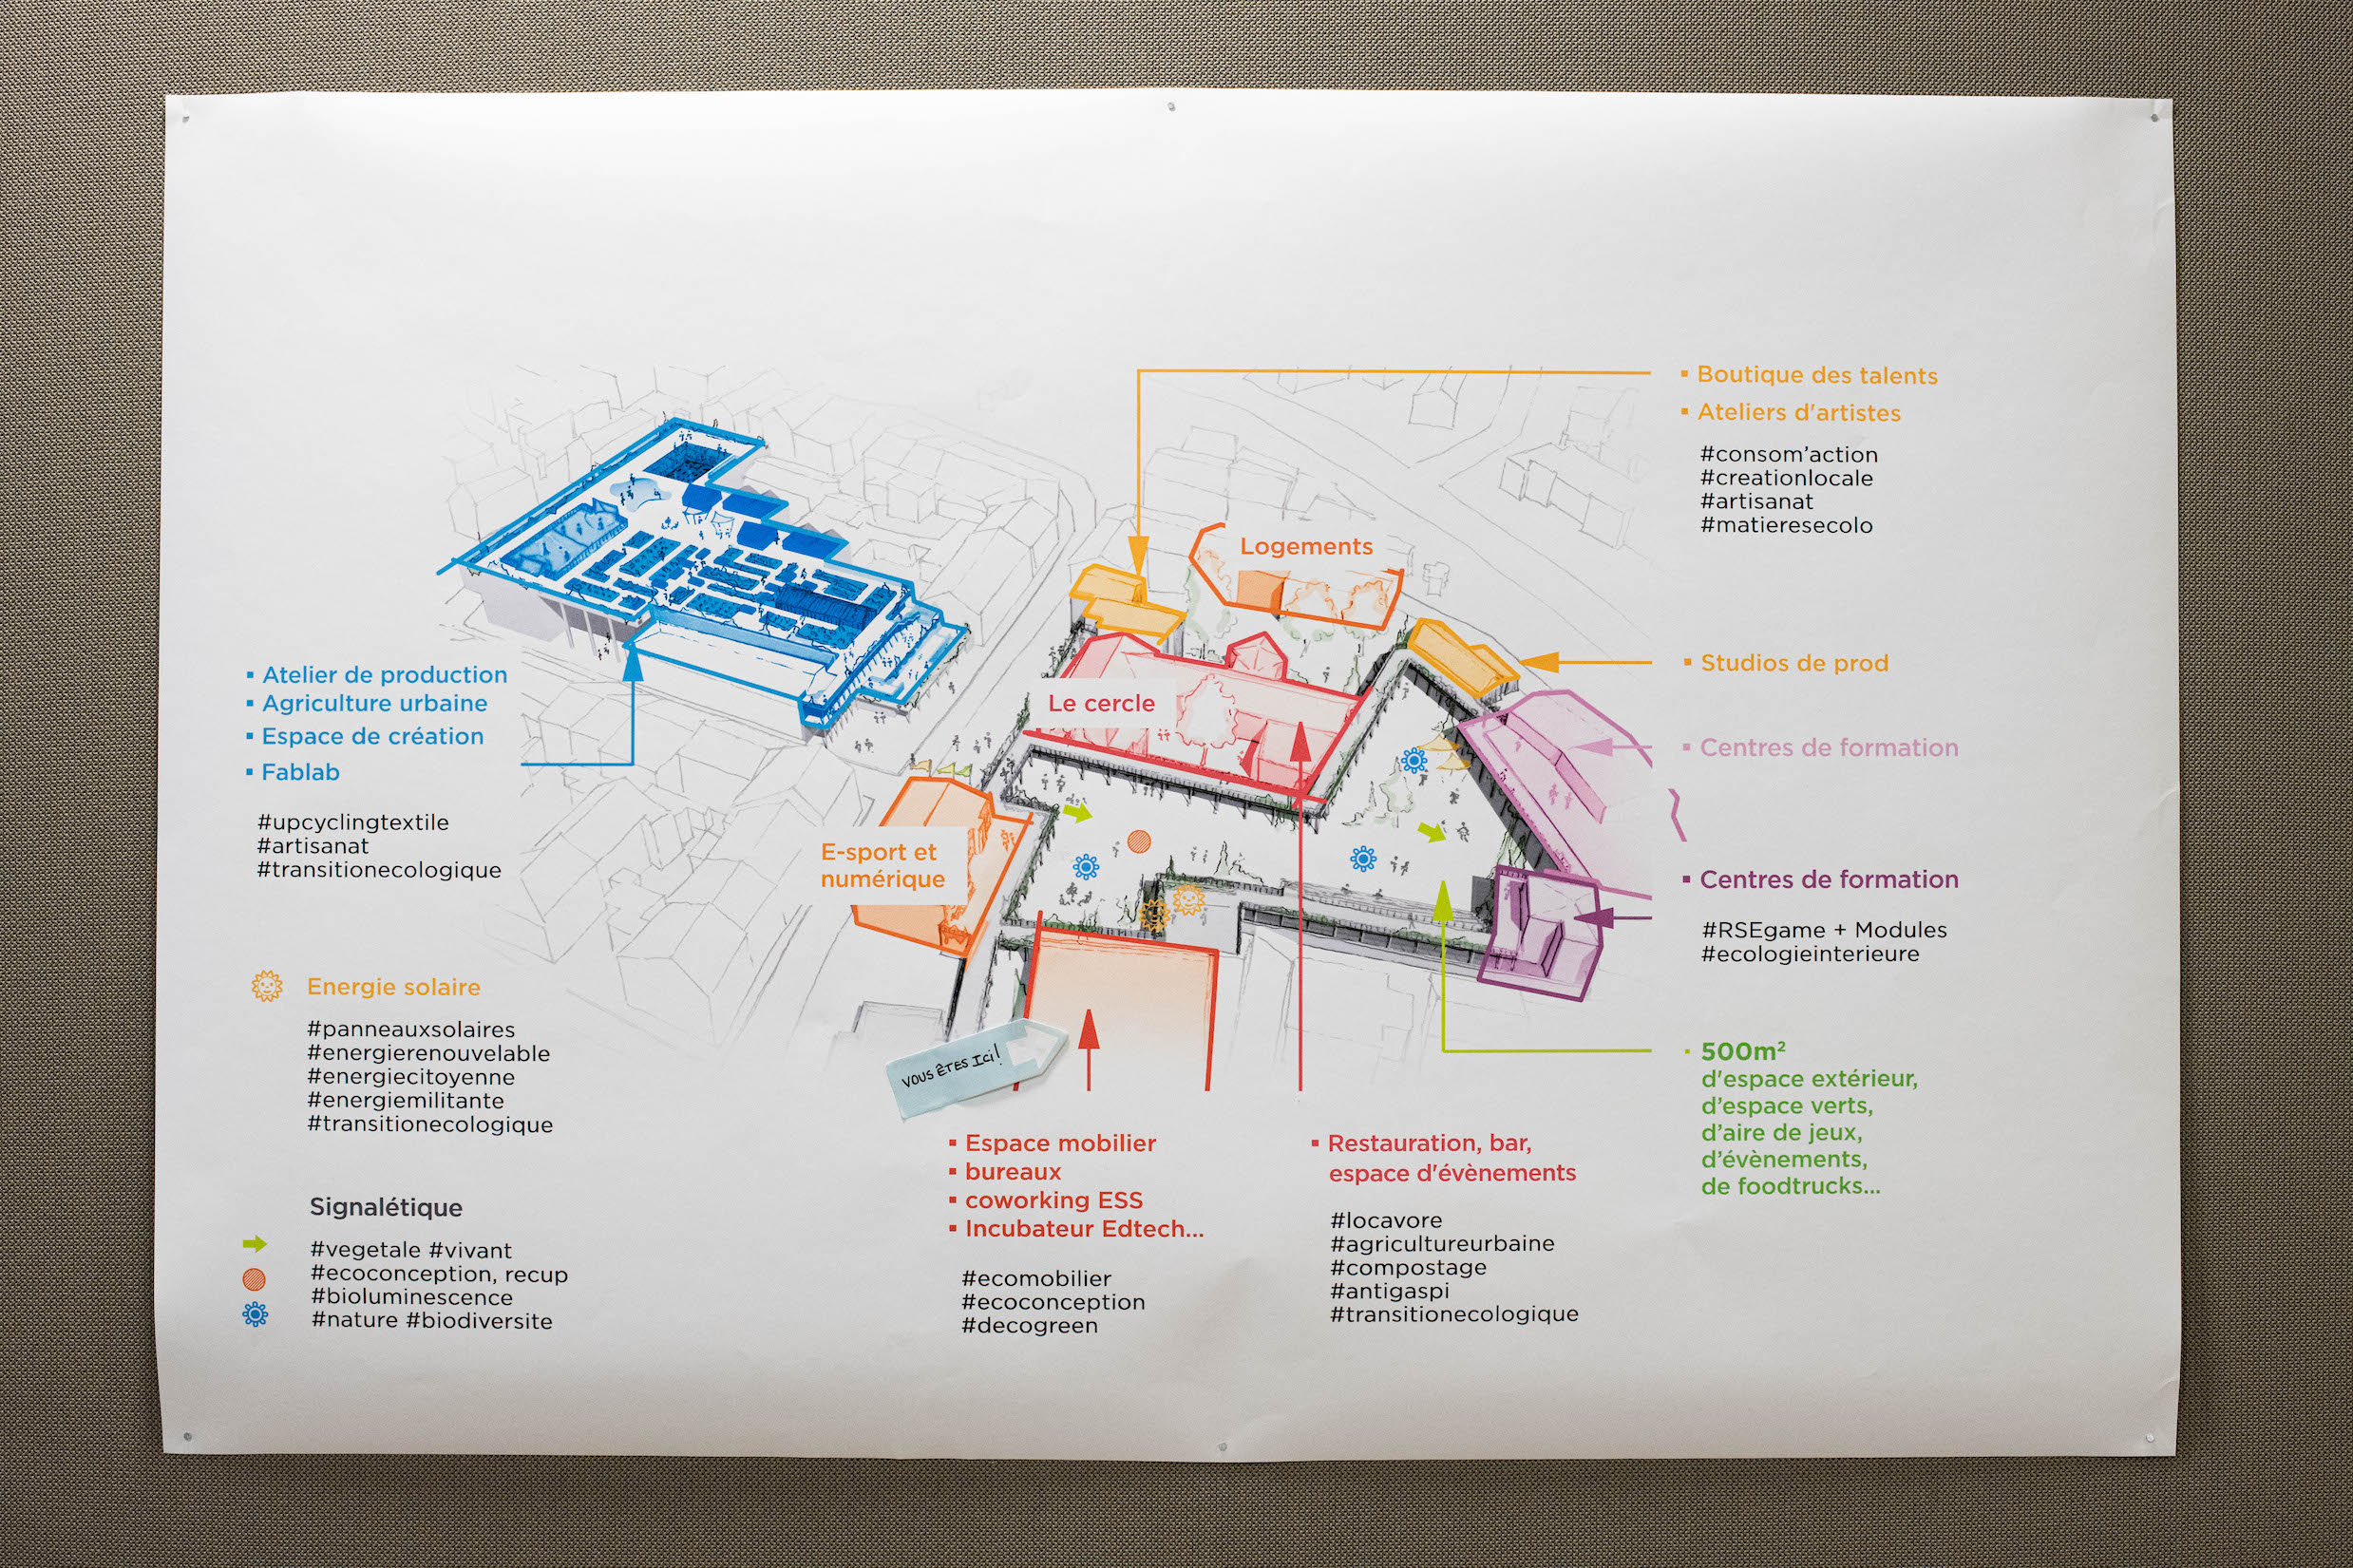 ▪ Boutique des talents
▪ Ateliers d'artistes
#consom’action
#creationlocale
#artisanat
#matieresecolo
Logements
▪ Studios de prod
Le cercle
▪ Centres de formation
▪ Atelier de production
▪ Agriculture urbaine
▪ Espace de création
▪ Fablab
#upcyclingtextile
#artisanat
#transitionecologique
E-sport et
numérique
▪ Centres de formation
#RSEgame + Modules
#ecologieinterieure
Energie solaire
#panneauxsolaires
#energierenouvelable
#energiecitoyenne
#energiemilitante
#transitionecologique
VOUS ÊTES ICI!
▪ 500m²
d'espace extérieur,
d’espace verts,
d’aire de jeux,
d’évènements,
de foodtrucks...
▪ Espace mobilier
▪ bureaux
▪ coworking ESS
▪ Incubateur Edtech...
#ecomobilier
#ecoconception
#decogreen
▪ Restauration, bar,
espace d'évènements
#locavore
#agricultureurbaine
#compostage
#antigaspi
#transitionecologique
Signalétique
#vegetale #vivant
#ecoconception, recup
#bioluminescence
#nature #biodiversite